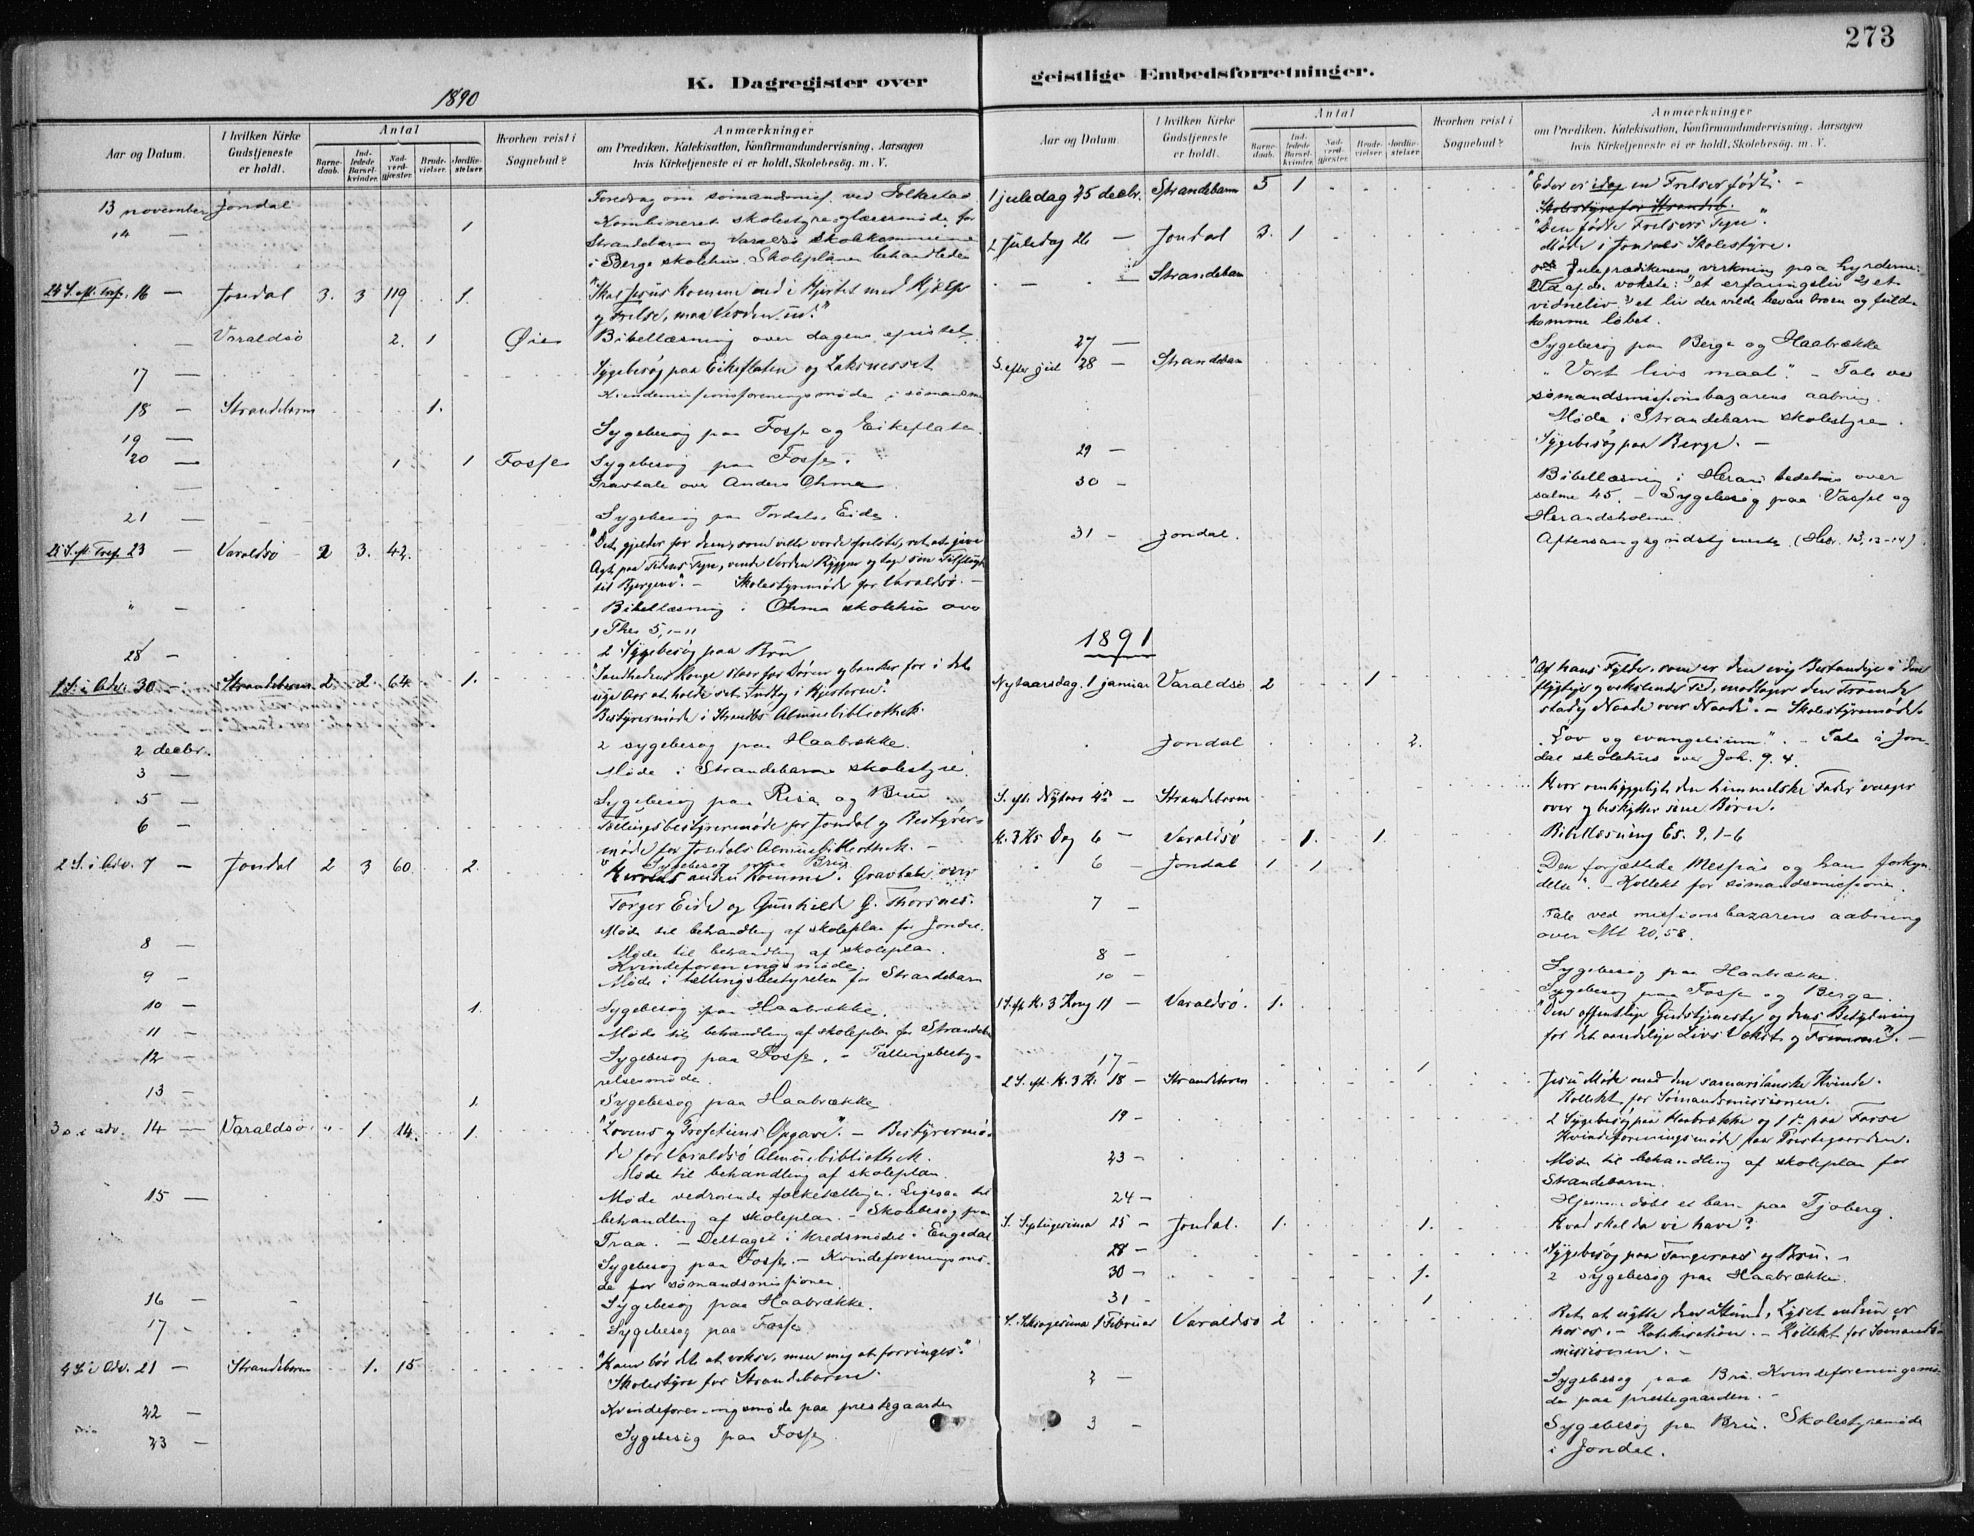 273
K. Dagregister over
geistlige Embedsforretninger.
1890
Aar og Datum.
I hvilken Kirke Gudstjeneste er holdt.
Antal
Barne-daab.
Ind-ledede Barsel-kvinder.
Nad-verd-gjæster.
Brude-vielser.
Jordfæ-stelser.
Hvorhen reist i Sognebud?
Anmærkninger
om Prædiken, Katekisation, Konfirmandundervisning. Aarsagen
hvis Kirketjeneste ei er holdt, Skolebesøg. m. V.
13 november Jondal Foredrag om sømandsmis. ved Folkestad
14 — 1 Kombineret skolestyre og læsermøde for
Strandebarm og Varaldsö skolekommune
i Berge skolehus. Skoleplanen behandledes
24 S. eft. Tref. 16 — Jondal 3. 3 119 1. "Skal Jesus komme ned i Hjertet med Hjælp
og Frelse, maa Verden ud."
— Varaldsö 2. 1 Øie Bibellæsning over dagens epistel.
17 — Sygebesög paa Eikeflaten og Laksnesset
18 — Strandebarm 1. Kvindemissionsforeningsmøde i sømands
19 — Sygebesøg paa Fosse og Eikeflaten.
20 — 1 1 Fosse Sygebesøg paa Fosse.
Gravtale over Anders Ohma
21 — Sygebesøg paa Tordals. Eide.
25 S. eft. Tref. 23 — Varaldsö 2 3. 42. "Det gjelder for dem, som ville vorde frelste, ret at give
Agt paa Tidens Tegn, vende Verden Ryggen og tage sin Tilflugt
til Bjergene". — Skolestyremøde for Varaldsö. —
" — Bibellæsning i Ohma skolehus over
1 Thes 5, 1-11
28 — 2 Sygebesög paa Bru
1 S. i Adv. 30 — Strandebarm 2 2. 64. 1. "Sandhedens Konge staar for Døren og banker for i det
nye Aar at holde sit Indtog i Hjerterne."
Bestyrermøde i Strandbs Almuebibliothek.
2 decbr. 2 sygebesøg paa Haabrække.
3 — Møde i Strandebarms skolestyre.
5 — Sygebesøg paa Risa og Bru
6 — Tællingsbestyrermøde for Jondal og Bestyrer-
møde for Jondals Almuebibliothek. —
Sygebesøg paa Bru
2 S. i Adv. 7 — Jondal 2 3 60. 2. "Herrens anden Komme". Gravtale over
Torger Eide og Gunhild G. Thorsnes.
Møde til behandling af skoleplan for Jondal.
8 — Møde til behandling af skoleplan.
Kvindeforeningsmøde.
9 — Møde i tællingsbestyrelsen for Strandebarm
10 — 1. Sygebesøg paa Haabrække.
11 — Møde til behandling af skoleplan for Strandeb.
12 — Sygebesøg paa Fosse. — Tællingsbesty-
relsesmøde.
13 — 1. Sygebesøg paa Haabrække
3 s. i adv. 14 — Varaldsö " 1. 14. 1. "Lovens og Profetiens Opgave". — Bestyrermø-
de for Varaldsö Almuebibliothek.
Møde til behandling af skoleplan
15 — Møde vedrørende folketællingen. Ligesaa til
behandling af skoleplan. — Skolebesøg paa
Traa. — Deltaget i kredsmødet i Engedal
Sygebesøg paa Fosse. — Kvindeforeningsmø-
de for sømandsmissionen.
16 — Sygebesøg paa Haabrække.
17 — Sygebesøg paa Fosse
4 S. i Adv. 21 — Strandebarm 1. 15 "Ham bør det at vokse, men mig at forringes."
Skolestyre for Strandebarm.
22 — Kvindeforeningsmøde paa prestegaarden
23 — Sygebesøg paa Fosse
Aar og Datum.
I hvilken Kirke Gudstjeneste er holdt.
Antal
Barne-daab.
Ind-ledede Barsel-kvinder.
Nad-verd-gjester.
Brude-vielser.
Jordfæ-stelser.
Hvorhen reist i Sognebud?
Anmærkninger
om Prædiken, Katekisation, Konfirmandundervisning. Aarsagen
hvis Kirketjeneste ei er holdt, Skolebesøg. m. V.
1 juledag 25 decbr. Strandebarm 5 1 "Eder er idag en Frelser født". —
Skolestyre for Strandeb.
2 Juledag 26 — Jondal 3. 1 "Den fødte Frelsers Tegn".
Møde i Jondals Skolestyre.
— Strandebarm Juleprædikenens virkning paa hyrderne:
af de vokste: 1) et erfaringsliv 2) et
vidneliv. 3) et liv der vilde bevare troen og fuld-
komme løbet.
27 — Sygebesøg paa Berge og Haabrække
S. efter jul 28 — Strandebarm "Vort livs maal". — Tale ved
sømandsmissionsbazarens aabning.
Møde i Strandebarm skolestyre.
29 — Sygebesøg paa Berge. —
30 — Bibellæsning i Herand bedehus over
salme 45. — Sygebesøg paa Vassel og
Herandsholmen.
31 — Jondal. Aftensangsgudstjeneste. (Hebr. 13, 13-14).
1891
Nytaarsdag. 1 januar Varaldsö. 2 1 "Af hans Fylde, som er den evig Bestandige i den
flygtige og vekslende Tid, modtager den Troende
stadig Naade over Naade". — Skolestyremøde.
Jondal 2. "Lov og evangelium". — Tale i Jon-
dal skolehus over Joh. 9. 4.
S. eft. Nytaar 4de — Strandebarm Hvor omhyggeligt den himmelske Fader vaager
over og beskytter sine Børn.
H. 3 Ks Dag 6 — Varaldsö 1. 1. Bibellæsning Es. 9, 1-6
6 — Jondal 1 1 "Den forjættede Messias og hans forkyn-
delse". — Kollekt for sømandsmissionen.
7 — Tale ved missionsbazarens aabning
over Mt 20, 58.
8 — Sygebesøg paa Haabrække.
10 — Sygebesøg paa Fosse og Berge.
1 S. eft. H. 3 Kong 11 — Varaldsö. 1. "Den offentlige Gudstjeneste og dens Betydning
for det aandelige Livs Vækst og Fremme". —
17 — 1
2 S. eft. H. 3 K. 18 — Strandebarm Jesu Møde med den samaritanske Kvinde.
Kollekt for Sømandsmissionen.
19 — 2 Sygebesøg paa Haabrække og 1 do paa Fosse
Kvindeforeningsmøde paa Prestegaarden.
23 — Møde til behandling af skoleplan for
Strandebarm.
24 — Hjemmedøbt et barn paa Tjoberg.
S. Septuagesima 25 — Jondal. 1. 1. Hvad skal da vi have?
28 — Sygebesøg paa Tangeraas og Bru. —
30 — 1. 2 sygebesøg paa Haabrække.
31 — 1
S. Seksagesima 1 Februar Varaldsö 2 Ret at nytte den Stund, Lyset endnu er
hos os. — Katekisation. — Kollekt for Sømands-
missionen. —
2 — Sygebesøg paa Bru. Kvindeforeningsmø-
de paa prestegaarden. —
3 — Sygebesøg paa Bru. Skolestyremøde
i Jondal.